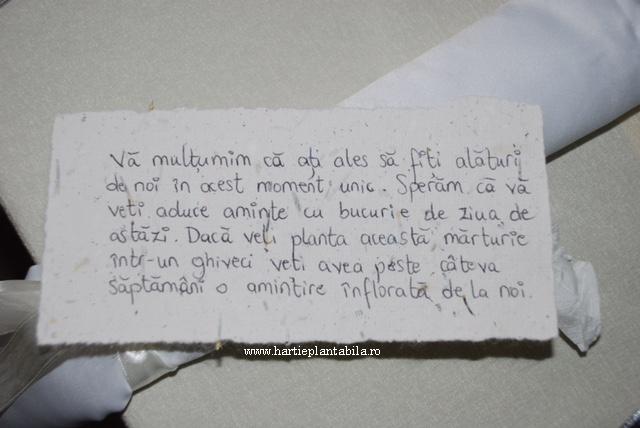 Vă mulțumim că ați ales să fiți alături
de noi în acest moment unic. Sperăm că vă
veți aduce aminte cu bucurie de ziua de
astăzi. Dacă veți planta această mărturie
într-un ghiveci veți avea peste câteva
săptămâni o amintire înflorată de la noi.
www.hartieplantabila.ro